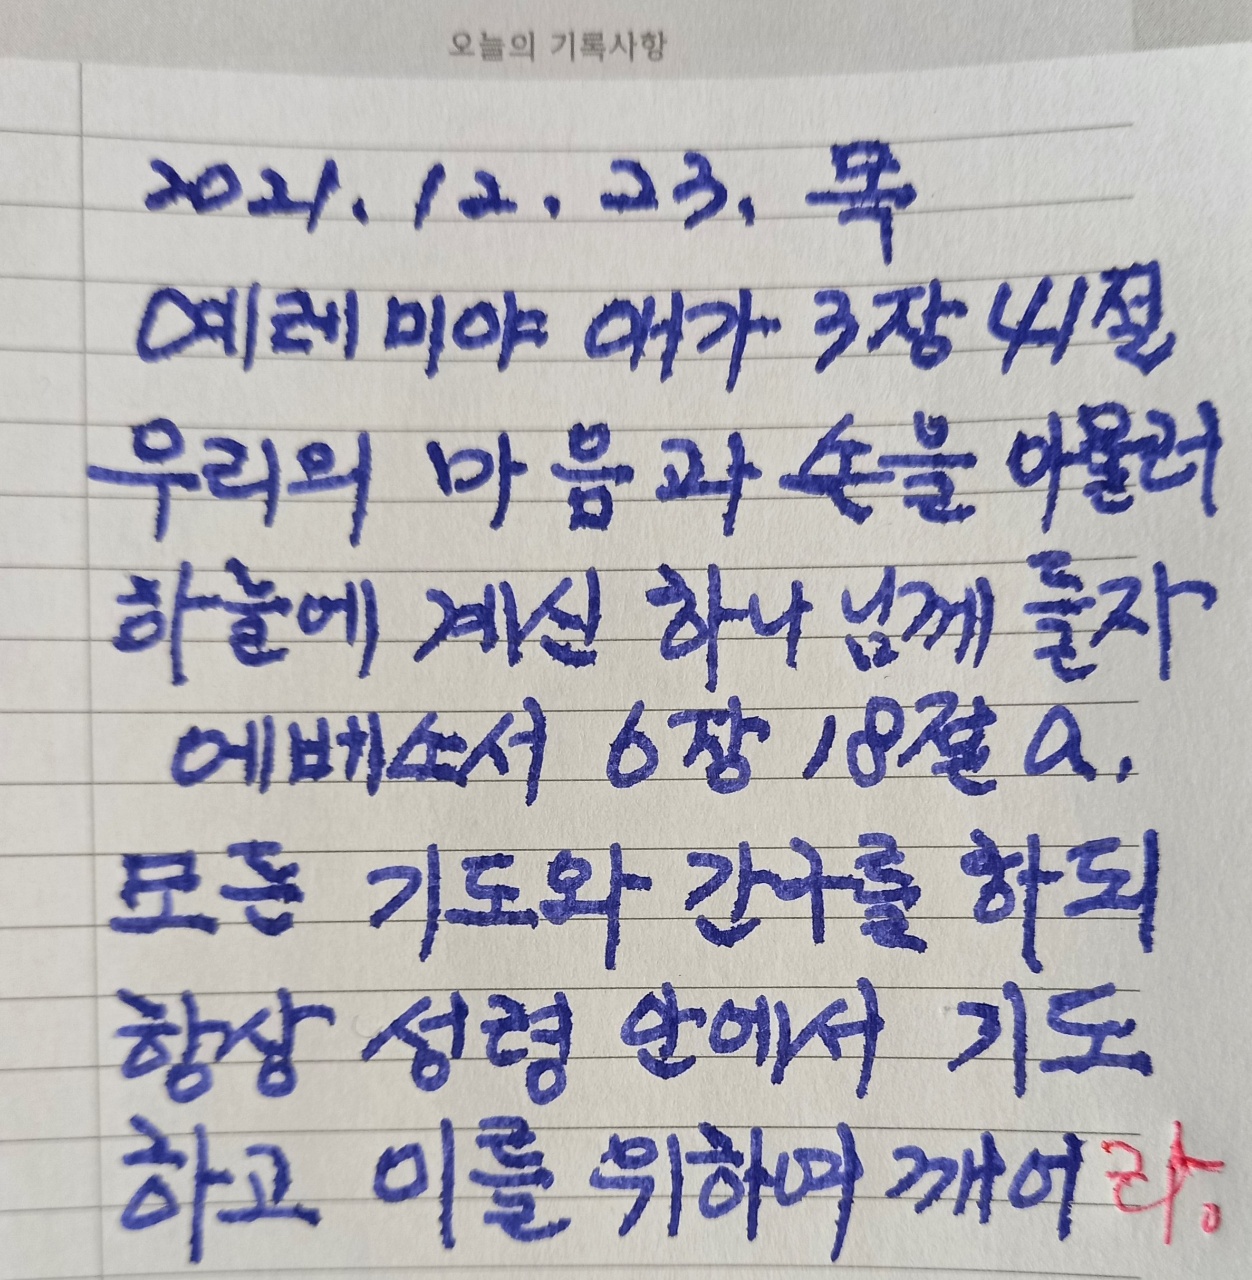 오늘의 기록사항
2021. 12. 23. 목
예레미야 애가 3장 41절
우리의 마음과 손을 아울러
하늘에 계신 하나님께 들자
에베소서 6장 18절 a.
모든 기도와 간구를 하되
항상 성령 안에서 기도
하고 이를 위하여 깨어라。